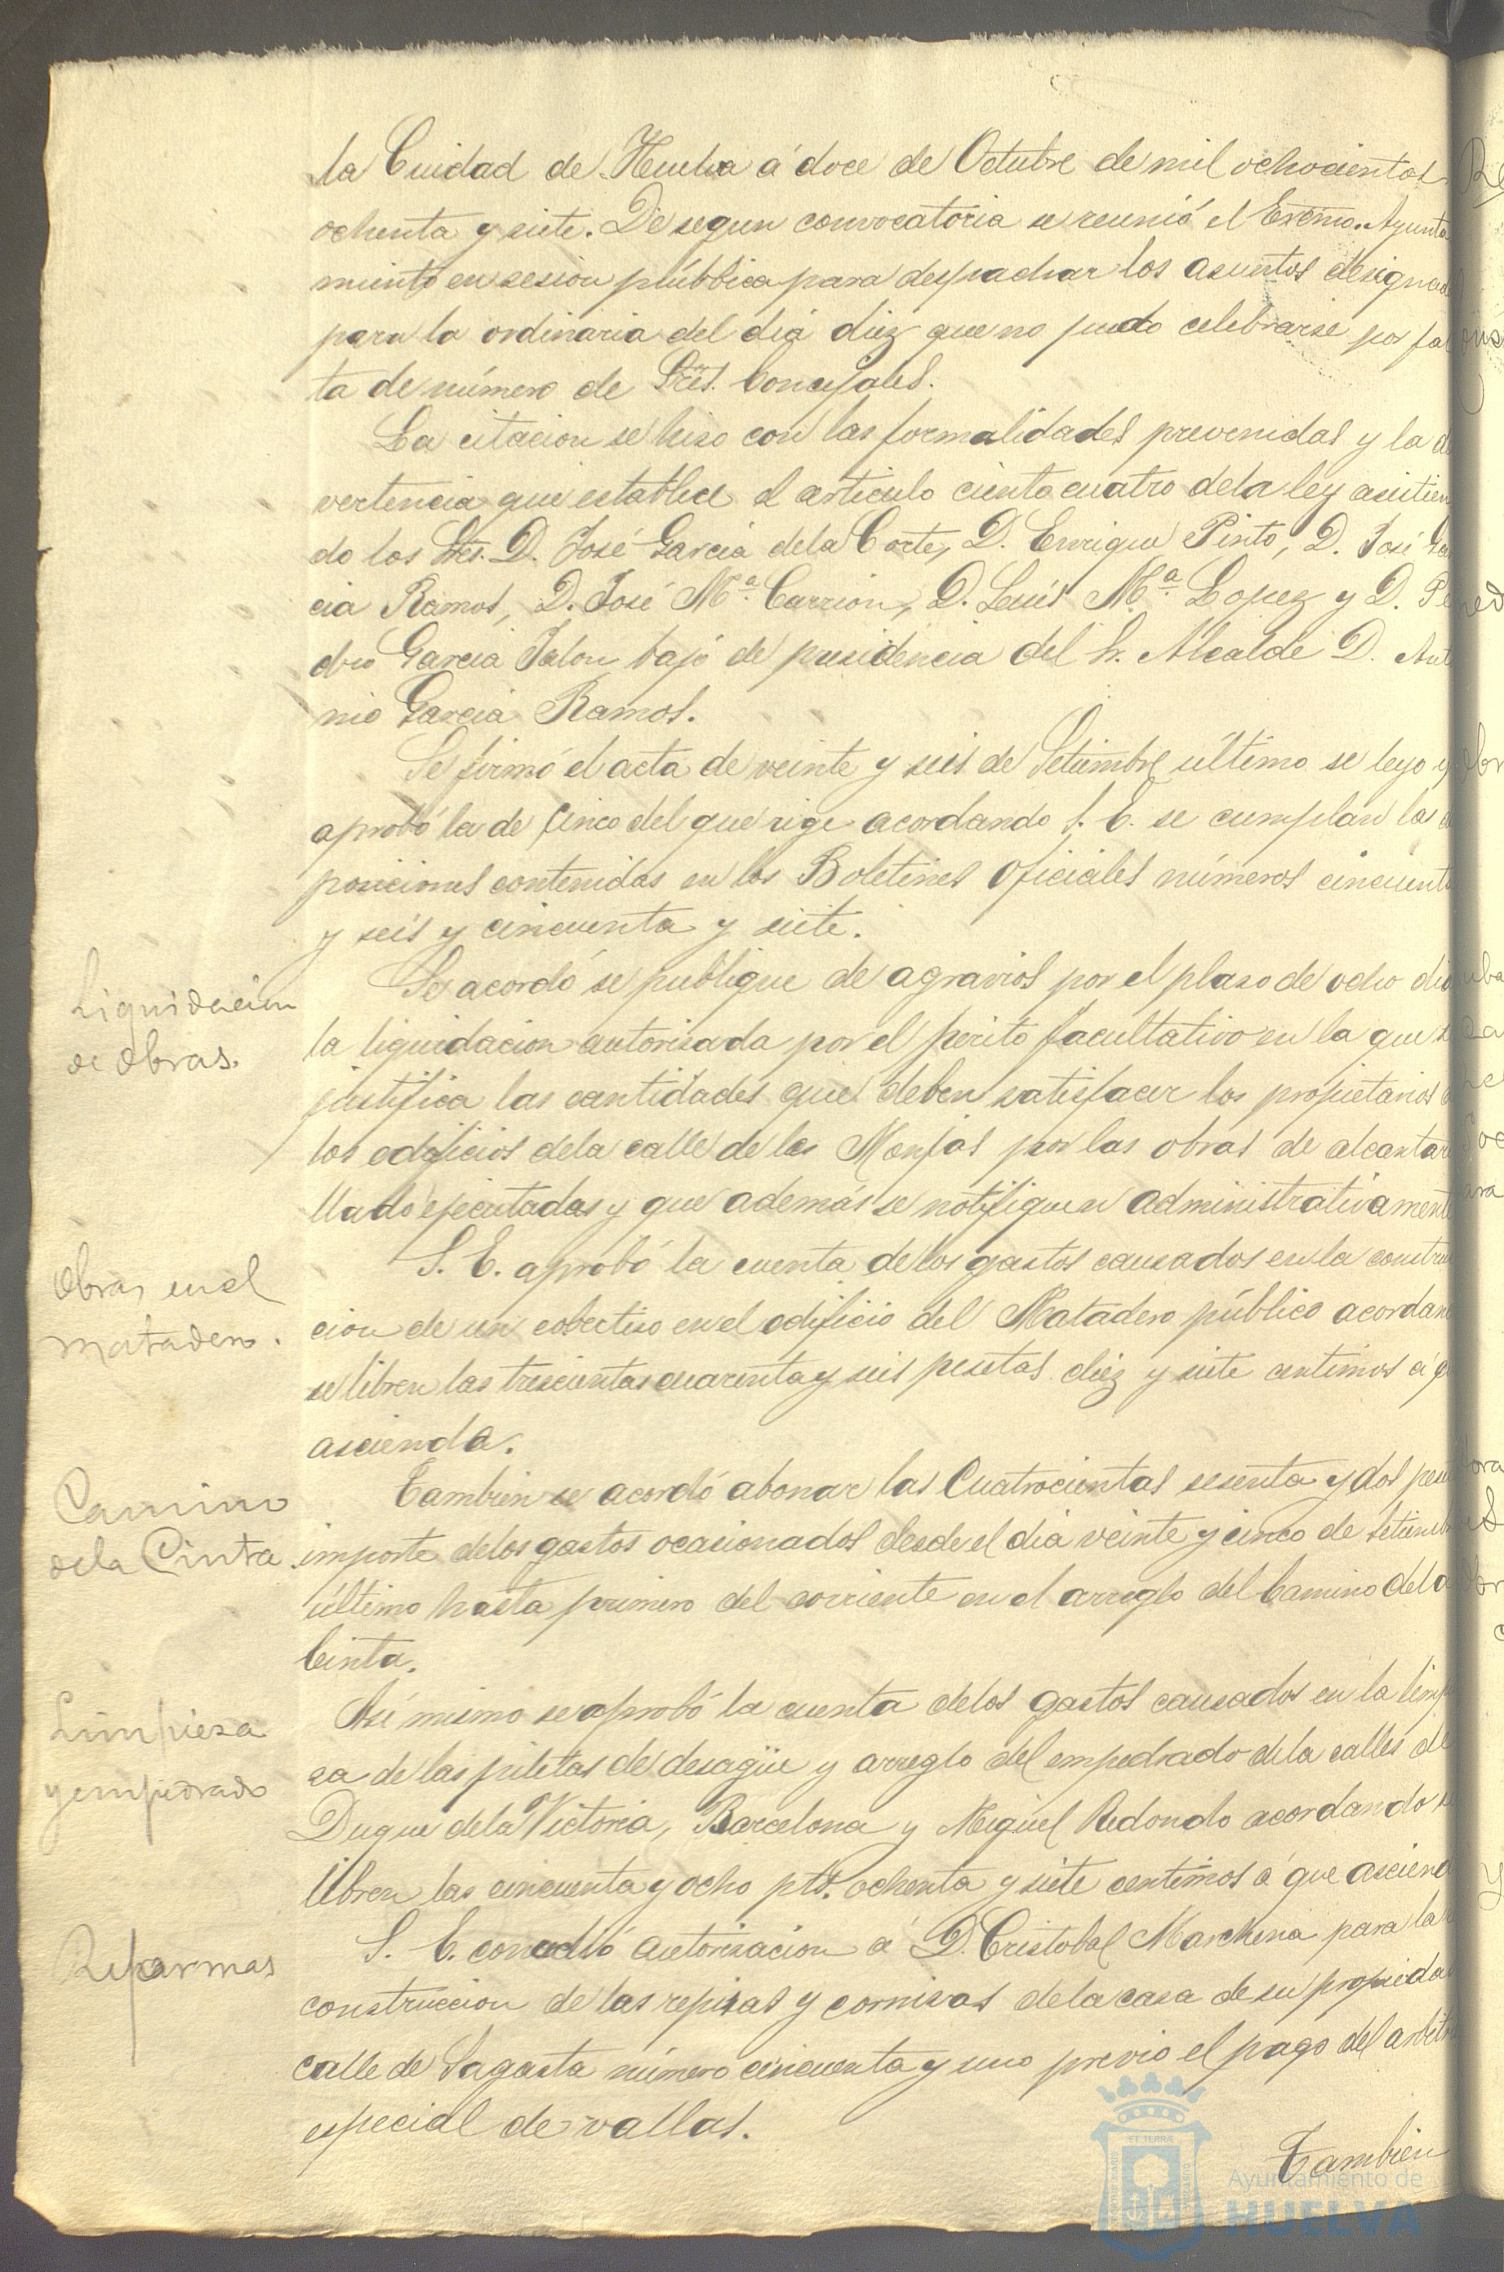 la Ciudad de Huelva á doce de Octubre de mil ochocientos
ochenta y siete. De segun convocatoria se reunió el Excmo. Ayunta
miento en sesion púbblica para despachar los asuntos designad
para la ordinaria del dia diez que no pudo celebrarse por fal
ta de número de Sres. Concejales.
La citacion se hiso con las formalidades prevenidas y la ad
vertencia que establece el articulo ciento cuatro de la ley asistien
do los Sres. D. José Garcia de la Corte, D. Enrique Pinto, D. José Gar
cia Ramos, D. José Mª. Carrion, D. Luís Mª. Lopez y D. Pe
dro Garcia Jalon bajo de presidencia del Sr. Alcalde D. Anto
nio Garcia Ramos.
Se firmó el acta de veinte y seis de Setiembre último se leyo y
aprobó la de Cinco del que rige acordando S. E. se cumplan las
posiciones contenidas en los Boletines Oficiales números cincuenta
y seis y cincuenta y siete.
Liquidacion
de obras.
Se acordó se publique de agravios por el plaso de ocho dias
la liquidacion autorisada por el perito facultativo en la que se
justifica las cantidades que deben satisfacer los propietarios
los edificios de la calle de las Monjas por las obras de alcantari
llado ejecutadas y que además se notifiquen administrativamente
Obras en el
matadero.
S. E. aprobó la cuenta de los gastos causados en la construc
cion de un cobertiso en el edificio del Matadero público acordando
se libren las trescientas cuarenta y seis pesetas diez y siete centimos á q
ascienda.
Camino
de la Cinta.
Tambien se acordó abonar las Cuatrocientas sesenta y dos pese
importe de los gastos ocasionados desde el dia veinte y cinco de Setiembre
último hasta primero del corriente en el arreglo del Camino de la
Cinta.
Limpiesa
y empedrado
Asi mismo se aprobó la cuenta de los gastos causados en la limpi
sa de las piletas de desagüe y arreglo del empedrado de la calles de
Duque de la Victoria, Barcelona y Miguel Redondo acordando se
libren las cincuenta y ocho pts. ochenta y siete centimos á que asciend
Reformas
S. E. concedió autorisacion á D. Cristobal Marchena para la
construccion de las repisas y cornisas de la casa de su propiedad
calle de Sagasta número cincuenta y uno previo el pago del arbitri
especial de vallas.
Tambien
Ayuntamiento de
HUELVA